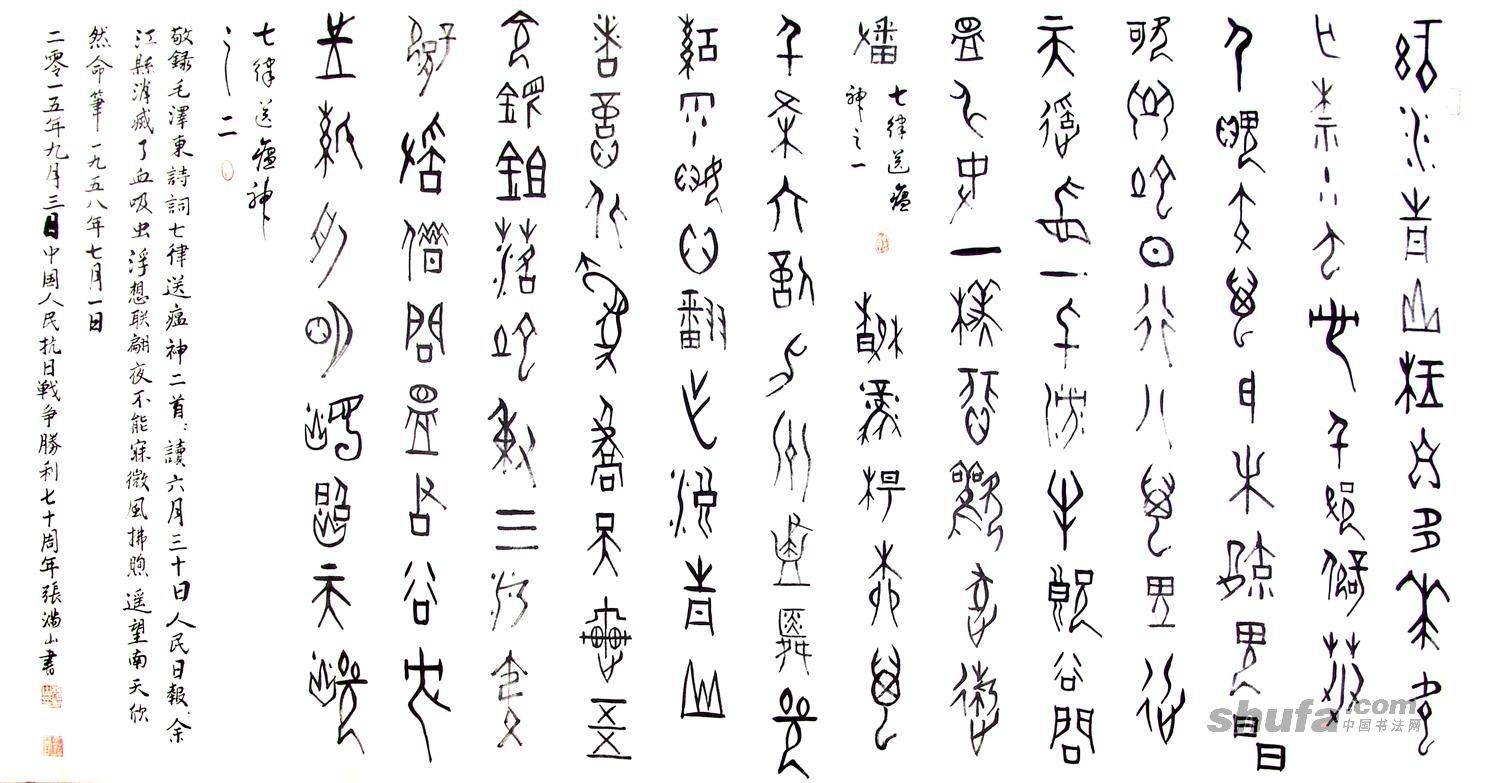 綠水青山枉自多華佗
無奈小虫何千村薜荔
人遺矢萬戶蕭疏鬼唱
歌坐地日行八萬里巡
天遥看一千河牛郎欲問
瘟神事一樣悲歡逐逝
波
七律送瘟
神之一
春風楊柳萬
千條六億神州盡舜堯
紅雨隨心翻作浪青山
着意化為橋天連五
嶺銀鋤落地動三河鐵
臂搖借問瘟君欲何往
紙船明燭照天燒
七律送瘟神
之二
敬録毛澤東詩詞七律送瘟神二首：讀六月三十日人民日報，余
江縣消滅了血吸虫浮想联翩夜不能寐微風拂煦遥望南天欣
然命筆一九五八年七月一日
二零一五年九月三日中国人民抗日戰争勝利七十周年張满山書
shufa.com
中国书法网